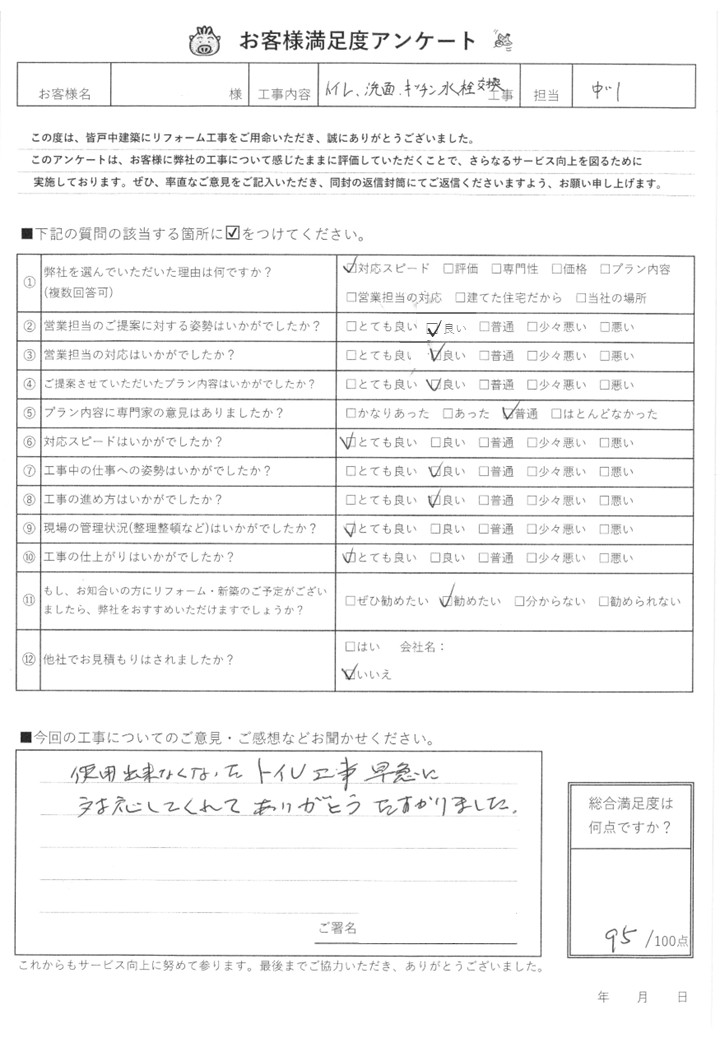 お客様満足度アンケート
お客様名 様 工事内容 トイレ、洗面、キッチン水栓交換 工事 担当 中川
この度は、皆戸中建築にリフォーム工事をご用命いただき、誠にありがとうございました。
このアンケートは、お客様に弊社の工事について感じたままに評価していただくことで、さらなるサービス向上を図るために
実施しております。ぜひ、率直なご意見をご記入いただき、同封の返信封筒にてご返信くださいますよう、お願い申し上げます。
■下記の質問の該当する箇所に☑をつけてください。
① 弊社を選んでいただいた理由は何ですか？
(複数回答可)
☑対応スピード □評価 □専門性 □価格 □プラン内容
□営業担当の対応 □建てた住宅だから □当社の場所
② 営業担当のご提案に対する姿勢はいかがでしたか？ □とても良い ☑良い □普通 □少々悪い □悪い
③ 営業担当の対応はいかがでしたか？ □とても良い ☑良い □普通 □少々悪い □悪い
④ ご提案させていただいたプラン内容はいかがでしたか？ □とても良い ☑良い □普通 □少々悪い □悪い
⑤ プラン内容に専門家の意見はありましたか？ □かなりあった □あった ☑普通 □ほとんどなかった
⑥ 対応スピードはいかがでしたか？ ☑とても良い □良い □普通 □少々悪い □悪い
⑦ 工事中の仕事への姿勢はいかがでしたか？ □とても良い ☑良い □普通 □少々悪い □悪い
⑧ 工事の進め方はいかがでしたか？ □とても良い ☑良い □普通 □少々悪い □悪い
⑨ 現場の管理状況(整理整頓など)はいかがでしたか？ ☑とても良い □良い □普通 □少々悪い □悪い
⑩ 工事の仕上がりはいかがでしたか？ ☑とても良い □良い □普通 □少々悪い □悪い
⑪ もし、お知合いの方にリフォーム・新築のご予定がござい
ましたら、弊社をおすすめいただけますでしょうか？
□ぜひ勧めたい ☑勧めたい □分からない □勧められない
⑫ 他社でお見積もりはされましたか？
□はい 会社名：
☑いいえ
■今回の工事についてのご意見・ご感想などお聞かせください。
使用出来なくなったトイレ工事早急に
対応してくれてありがとうたすかりました。
ご署名
総合満足度は
何点ですか？
95/100点
これからもサービス向上に努めて参ります。最後までご協力いただき、ありがとうございました。
年 月 日